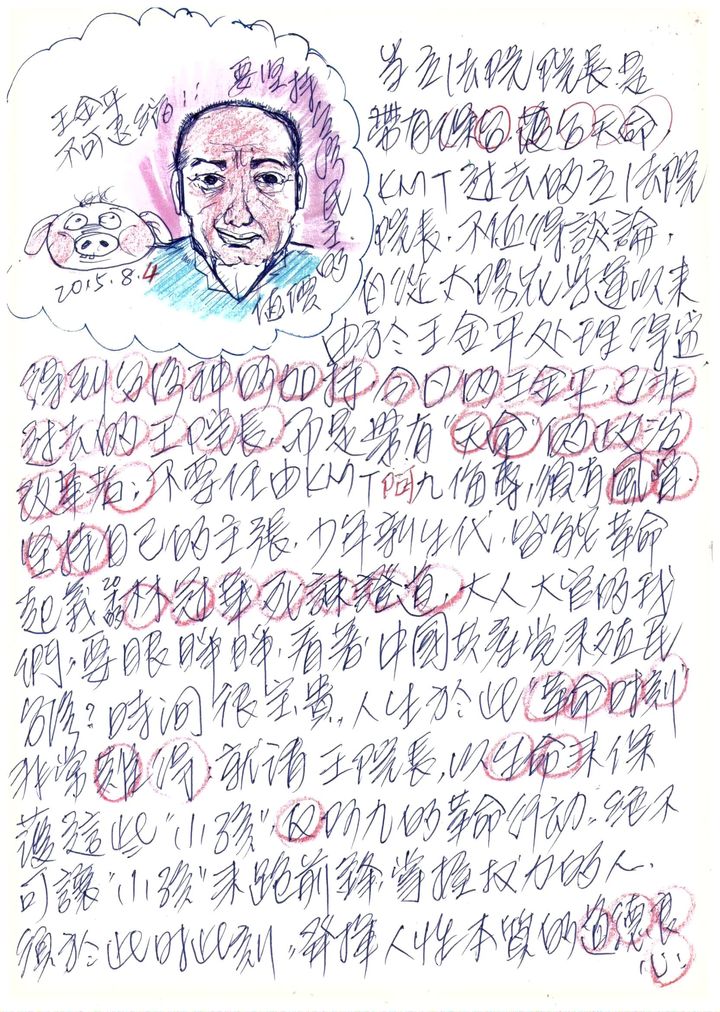 王金平
不可退縮!!
要坚持台湾民主的
価價
2015.8.4
当立法院院長是
帶有保台護台天命,
KMT过去的立法院
院長,不值得談論,
自從太陽花学運以来
由於王金平处理得道
得到台湾神的加持,今日的王金平,已非
过去的王院長,而是帶有"天命"的政治
改革者;不要任由KMT阿九侮辱,須有風骨.
坚持自己的主張,少年新生代,皆能革命
起義20岁的林冠華死諫發道,大人大官的我
們,要眼睜睜,看著中國共產党来殖民
台湾?时间很宝貴,人生於此革命时刻
非常難得,就请王院長,以生命来保
護這些"小孩"反阿九的革命行动,绝不
可讓"小孩"来跑前鋒,掌握权力的人,
須於此时此刻,發揮人性本質的道德良
心.